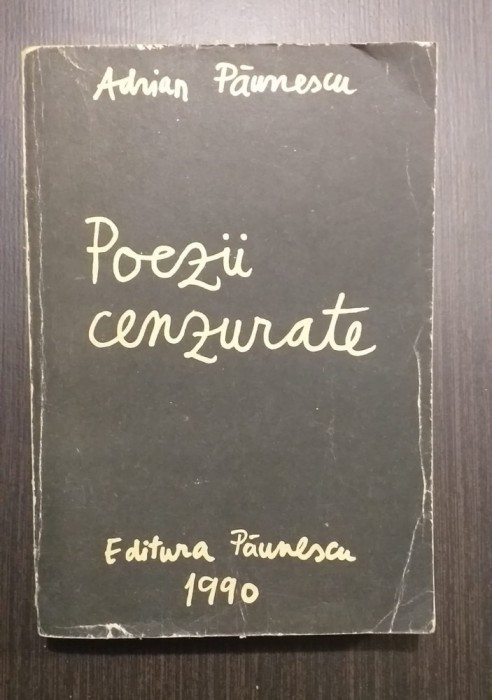 Adrian Păunescu
Poezii
cenzurate
Editura Păunescu
1990